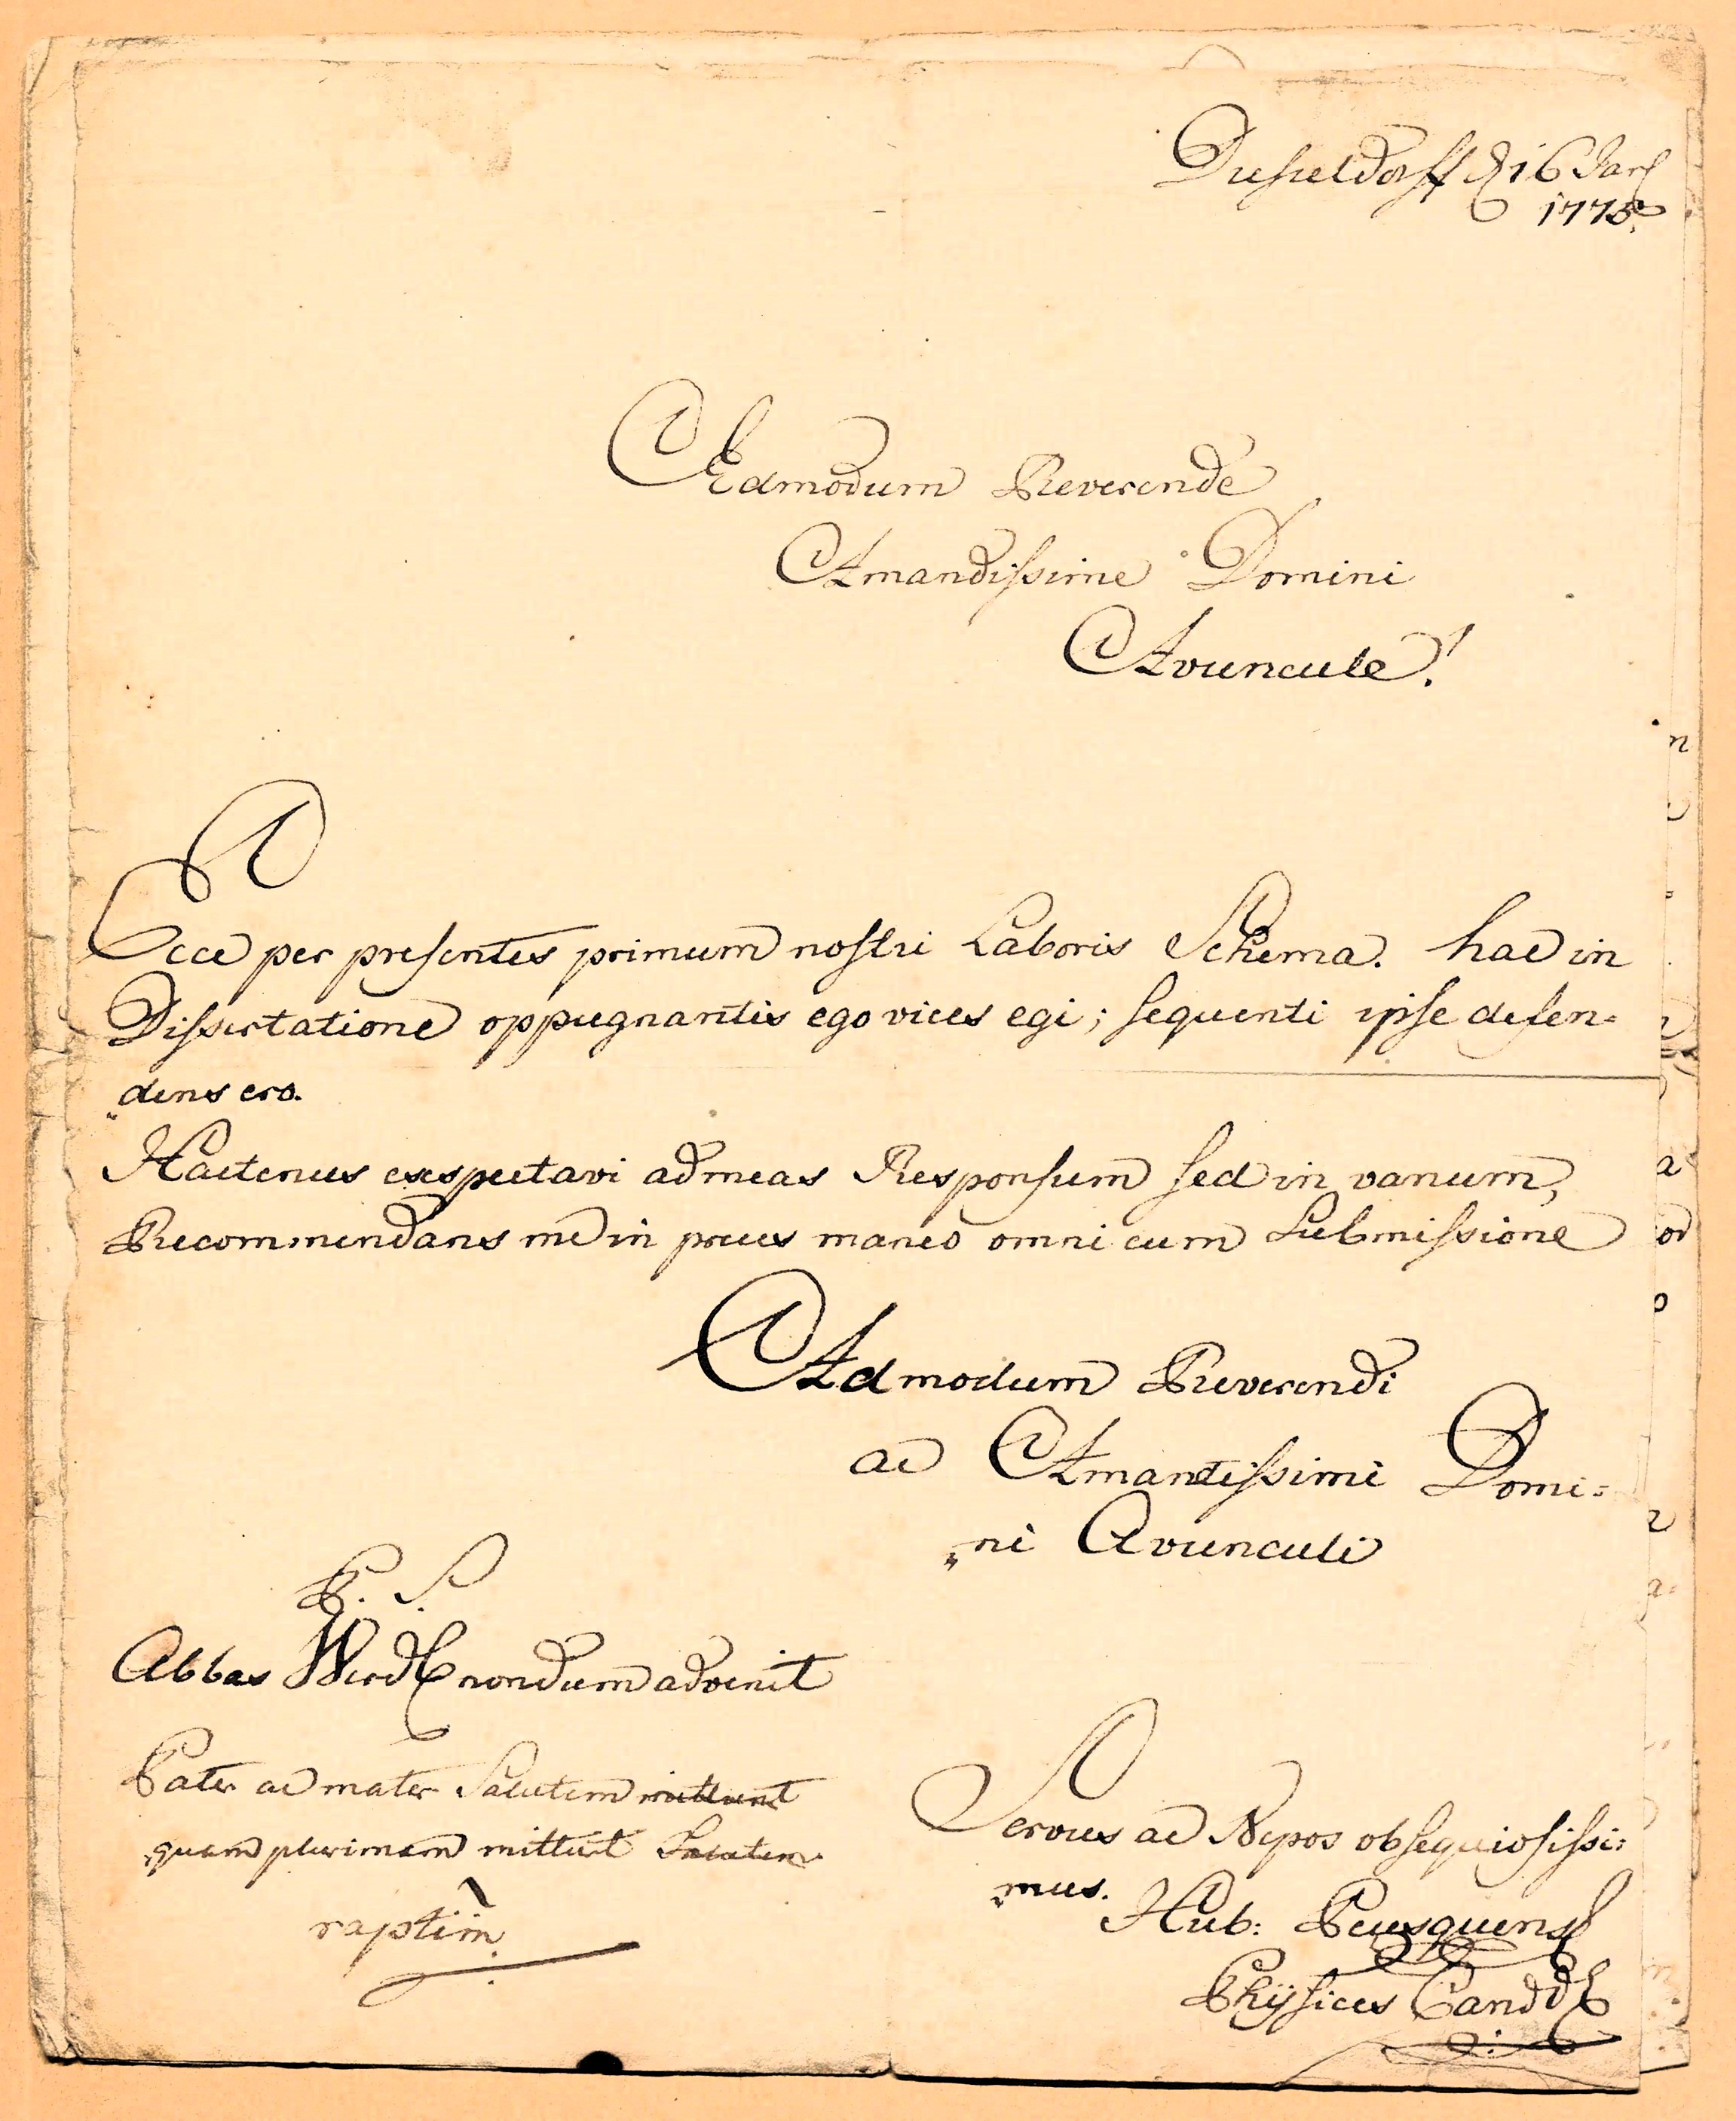 Dusseldorff d 16 Jan
1775
Admodum Reverende
Amandissime Domini
Avuncule!
Ecce per presentes primum nostri Laboris Schema. hac in
Dissertatione oppugnantis ego vices egi; sequenti ipse defen=
"dens ero.
Hactenus exspectavi ad meas Responsum sed in vanum,
Recommendans me in preces maneo omni cum Submissione
Admodum Reverendi
ac Amantissimi Domi=
"ni Avunculi
P. S.
Abbas Werd nondum advenit
Pater ac mater Salutem mittunt
quam plurimam mittunt Salutem
raptim
Servus ac Nepos obsequiosissi=
"mus.
Hub: Peusquens
Physices Candd